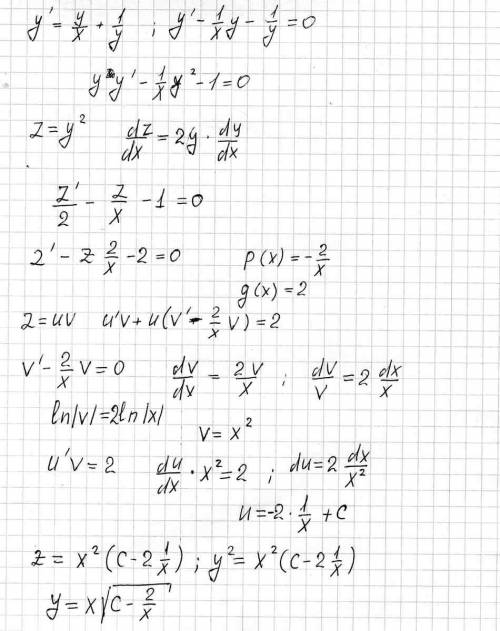 y' = y/x + 1/y ; y' - 1/x y - 1/y = 0
y y' - 1/x y² - 1 = 0
z = y² dz/dx = 2y · dy/dx
z'/2 - z/x - 1 = 0
z' - z 2/x - 2 = 0 p(x) = -2/x
g(x) = 2
z = uv u'v + u(v' - 2/x v) = 2
v' - 2/x v = 0 dv/dx = 2v/x ; dv/v = 2 dx/x
ln|v| = 2ln|x|
v = x²
u'v = 2 du/dx · x² = 2 ; du = 2 dx/x²
u = -2 · 1/x + c
z = x²(c - 2 1/x) ; y² = x²(c - 2 1/x)
y = x√(c - 2/x)